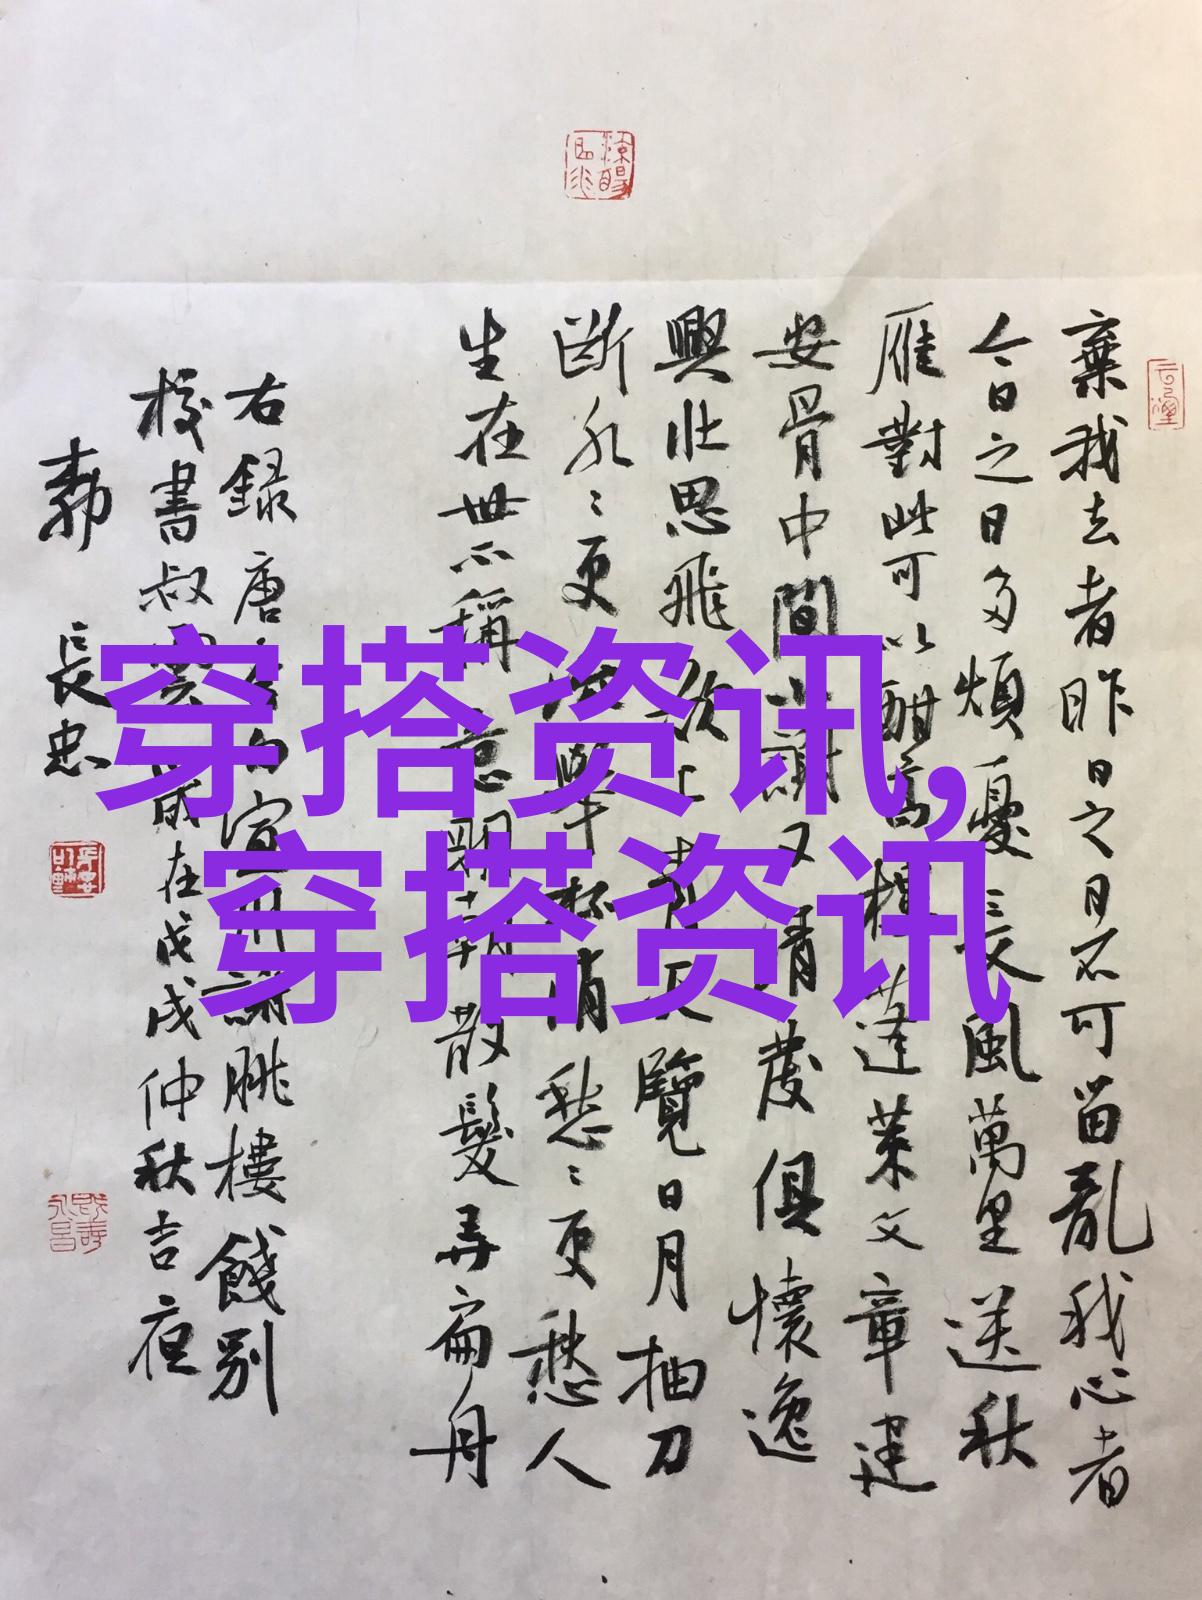 棄我去者昨日之日不可留亂我心者
今日之日多煩憂長風萬里送秋
雁對此可以酣高樓蓬萊文章建
安骨中間小謝又清發俱懷逸
興壯思飛欲上青天覽日月抽刀
斷水〻更流舉杯消愁〻更愁人
生在世不稱意明朝散髮弄扁舟
右録唐李白宣州謝朓樓餞別
校書叔雲歲在戊戌仲秋吉夜
長忠
穿搭资讯,
穿搭资讯